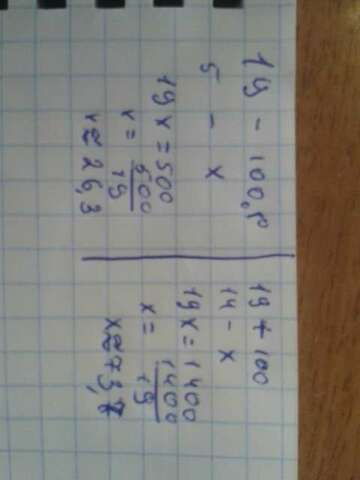 19 - 100%
5 - x
19x = 500
x = 500/19
x ≈ 26,3
19 + 100
14 - x
19x = 1400
x = 1400/19
x ≈ 73,7